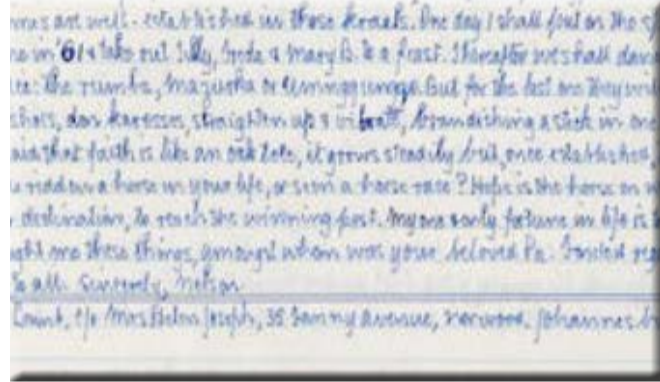 are well-established in those kraals. One day I shall put on the
in '61 & take out Lilly, & Mary B. to a feast. Thereafter we shall
the rumba, mazurka or But for the last one they
don karosses, straighten up & vibrate, brandishing a stick in one
said that faith is like an oak tree, it grows steadily but, once established,
ridden a horse in your life, or seen a horse race? Hope is the horse on
destination, to reach the winning post. My one & only fortune in life is
me these things, amongst whom was your beloved Pa. Fondest
to all. Sincerely, Nelson
c/o Mrs Helen Joseph, 35 Fanny Avenue, Norwood. Johannes